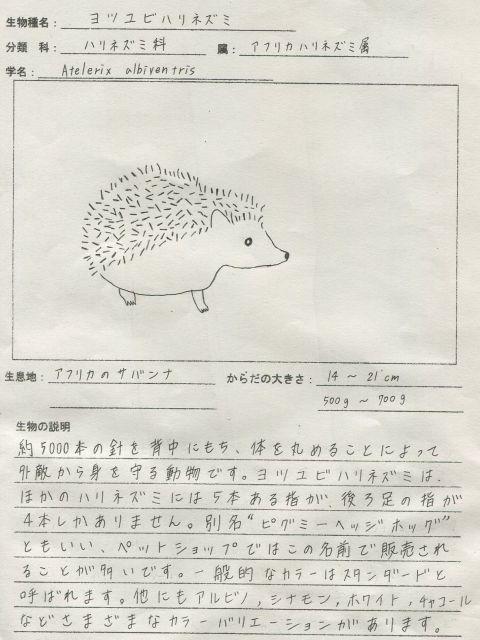 生物種名： ヨツユビハリネズミ
分類 科： ハリネズミ科 属： アフリカハリネズミ属
学名： Atelerix albiventris
生息地： アフリカのサバンナ からだの大きさ： 14 ～ 21 cm
500g ～ 700g
生物の説明
約5000本の針を背中にもち、体を丸めることによって
外敵から身を守る動物です。ヨツユビハリネズミは、
ほかのハリネズミには5本ある指が、後ろ足の指が
4本しかありません。別名“ピグミーヘッジホッグ”
ともいい、ペットショップではこの名前で販売され
ることが多いです。一般的なカラーはスタンダードと
呼ばれます。他にもアルビノ, シナモン, ホワイト, チャコール
などさまざまなカラーバリエーションがあります。